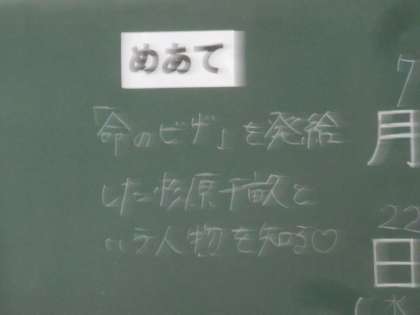 めあて
「命のビザ」を発給
した杉原千畝と
いう人物を知る♡
7
月
22
日
(水